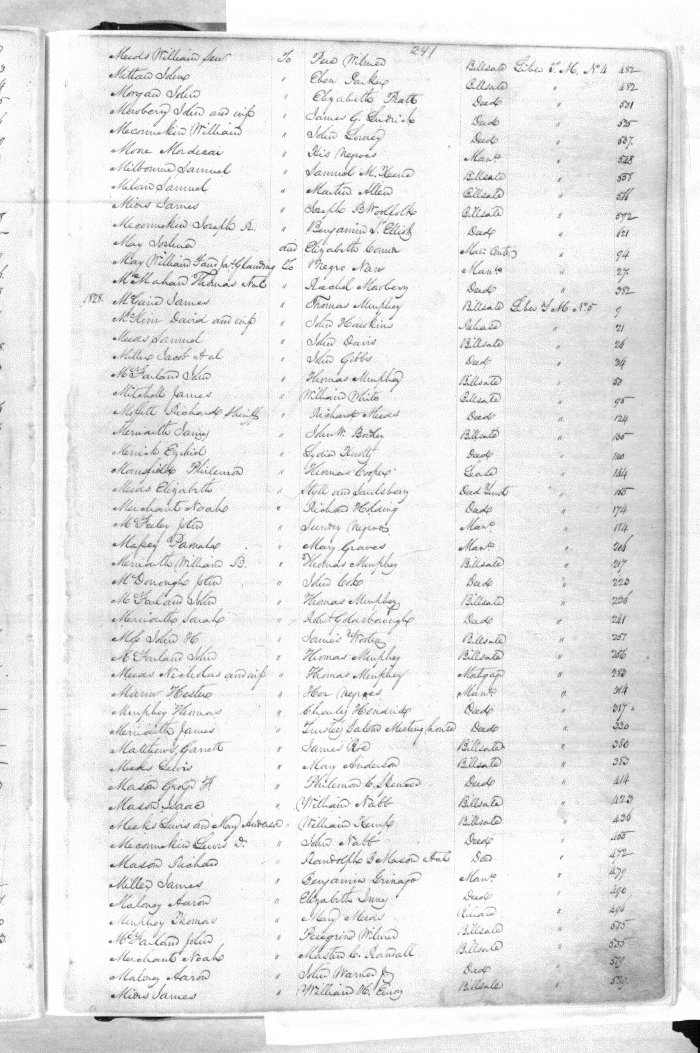 241
Meeds William Senr To Pere Wilmer Billsale Liber T. M. No 4 482
Mittan John " Eben Parker Billsale " 482
Morgan John " Elizabeth Pratt Deed " 501
Newberry John and wife " James G. Deed " 525
Meconnekin William " John Deed " 537
More Mordecai " His Negroes Manu "
Milbourne Samuel " Samuel M. Keene Billsale " 558
Samuel " Martin Allen Billsale " 566
Miers James " Joseph B Billsale " 572
Meconnekin Joseph R. " Benjamin S. Elliott Deed " 621
May Joshua and Elizabeth Comer Mari Contr " 94
May William to Negro Nan Manu " 27
McMahan Thomas " Rachel Newberry Deed " 382
1828 James " Thomas Murphey Billsale Liber T M No 5 9
McKim David and wife " John Hawkins Release " 21
Meeds Samuel " John Davis Billsale " 26
Miller Jacob " John Gibbs Deed " 34
McFarland John " Thomas Murphey Billsale " 50
Mitchell James " William White Billsale " 95
Moffett Richard Sheriff " Richard Meeds Deed " 124
Merideth " John W. Bordley Billsale " 135
Merrick Ezekiel " Lydia Knotts Deed " 140
Mansfield Philemon " Thomas Cooper Lease " 144
Meeds Elizabeth " and Saulsbery Deed Trust " 165
Merchant Noah " Richard Holding Deed " 174
McFeeley John " Sundry Negroes Manu " 184
Massey Pamela " Mary Graves Manu " 206
Merideth William B. " Thomas Murphey Billsale " 217
McDonough John " John Cox Deed " 223
McFarland John " Thomas Murphey Billsale " 236
Merideth Sarah " Goldsborough Deed " 241
John H " James Wooters Billsale " 257
McFarland John " Thomas Murphey Billsale " 256
Meeds Nicholas and wife " Thomas Murphey Mortgage " 283
Mann Hester " Her Negroes Manu " 314
Murphey Thomas " Charley Hendrix Deed " 317
Merideth James " Trustees Eaton Meeting house Deed " 330
Matthews Garrett " James Roe Billsale " 380
Meeks Lewis " May Anderson Billsale " 383
Mason George H " Philemon C. Spencer Deed " 414
Mason Isaac " William Nabb Billsale " 423
Meeks Lewis and May Anderson " William Kemp Billsale " 436
Meconnekin Lewis D. " John Nabb Deed " 465
Mason Richard " Randolph B Mason Deed " 472
Miller James " Benjamin Grinage Manu " 479
Maloney Aaron " Elizabeth Deed " 490
Murphey Thomas " Mary Meeds Release " 496
McFarland John " Peregrine Wilmer Billsale " 575
Merchant Noah " Master C. Randall Billsale " 535
Maloney Aaron " John Warner Jr Deed "
Miers James " William H. Billsale " 529